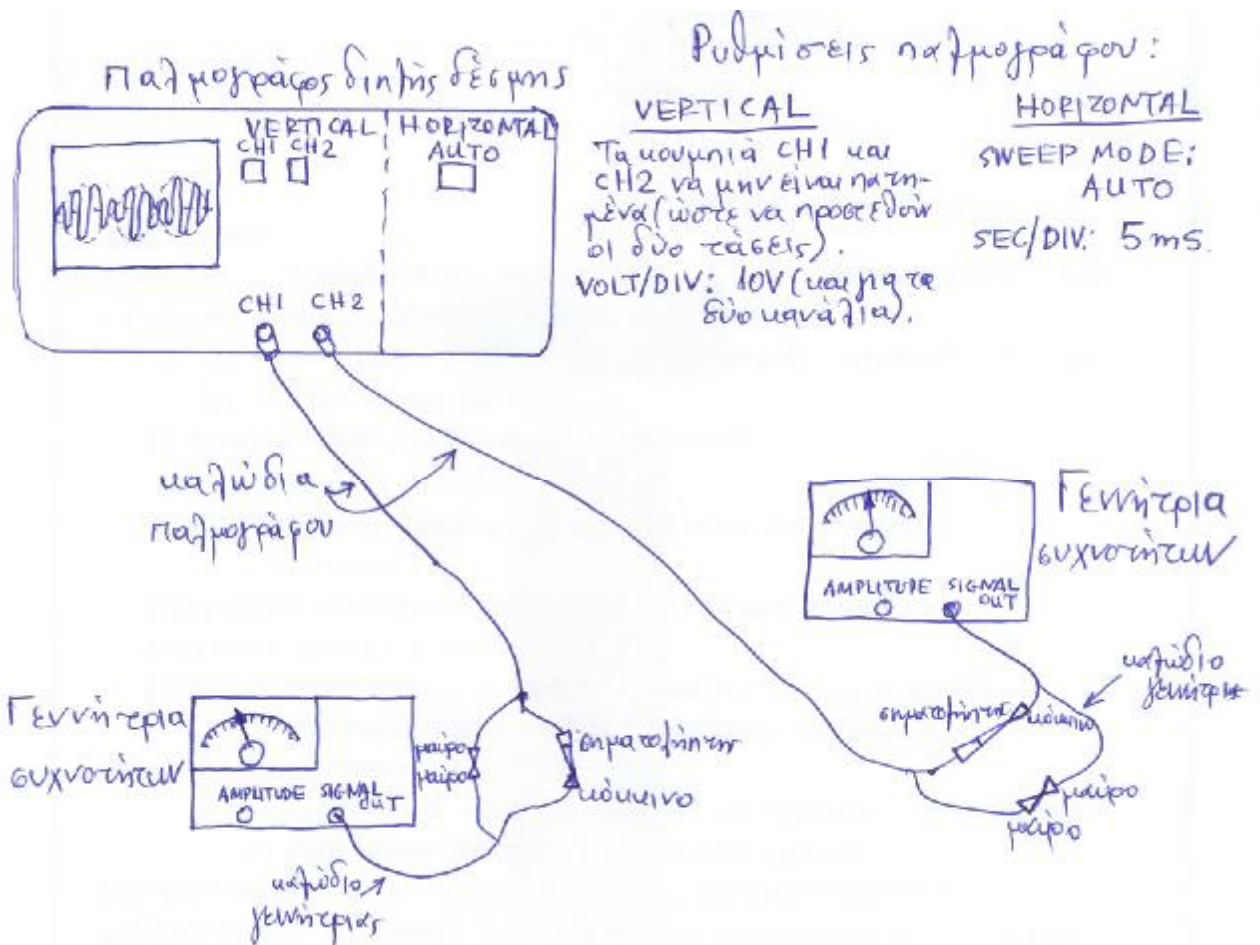 Παλμογράφος διπλής δέσμης
VERTICAL
HORIZONTAL
CH1 CH2
AUTO
CH1 CH2
Ρυθμίσεις παλμογράφου:
VERTICAL
Τα κουμπιά CH1 και
CH2 να μην είναι πατη-
μένα (ώστε να προστεθούν
οι δύο τάσεις).
VOLT/DIV: 10V (και για τα
δύο κανάλια).
HORIZONTAL
SWEEP MODE:
AUTO
SEC/DIV: 5 ms.
καλώδια
παλμογράφου
Γεννήτρια
συχνοτήτων
AMPLITUDE SIGNAL
OUT
καλώδιο
γεννήτριας
σηματολήπτης
κόκκινο
μαύρο
μαύρο
Γεννήτρια
συχνοτήτων
AMPLITUDE SIGNAL
OUT
μαύρο
μαύρο
σηματολήπτης
κόκκινο
καλώδιο
γεννήτριας